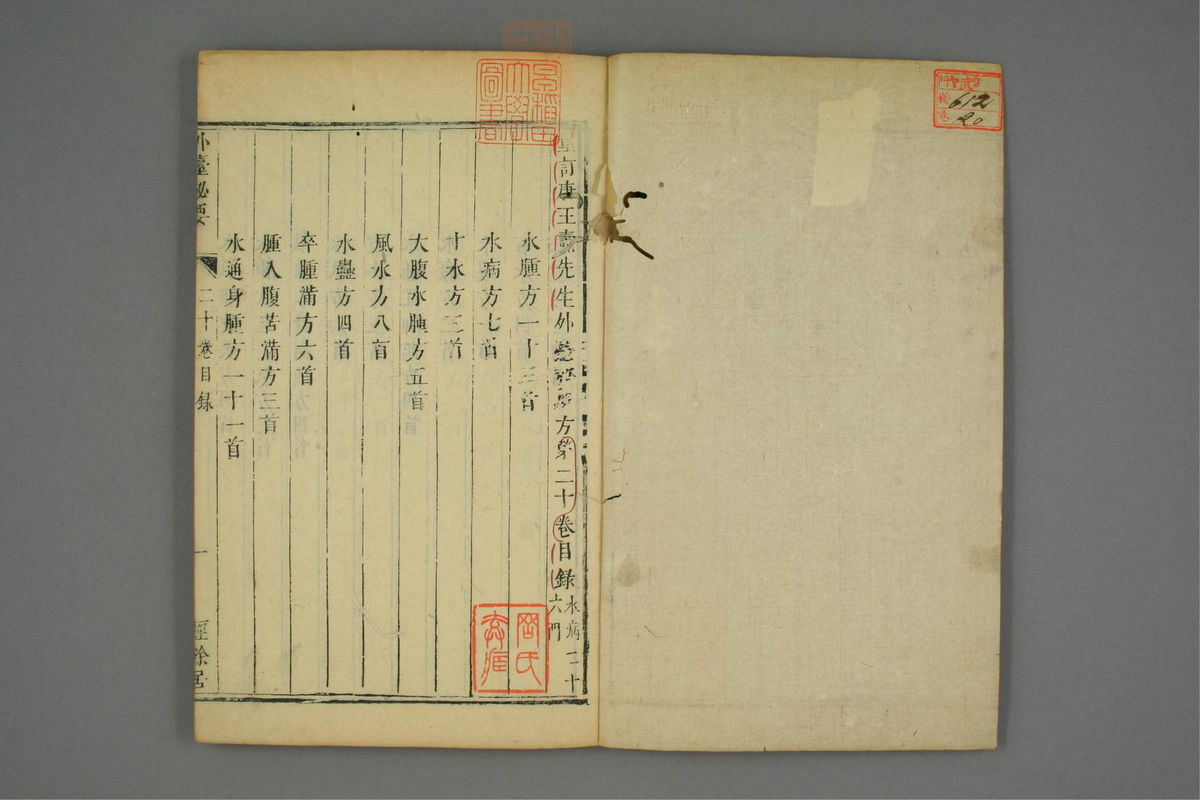 ヤ09
612
20
早稲田大學圖書
重訂唐王燾先生外臺秘要方第二十卷目録 水病二十六門
水腫方一十三首
水病方七首
十水方三首
大腹水腫方五首
風水方八首
水蠱方四首
卒腫滿方六首
腫入腹苦滿方三首
水通身腫方一十一首
外臺秘要
二十卷目録
一
經餘居